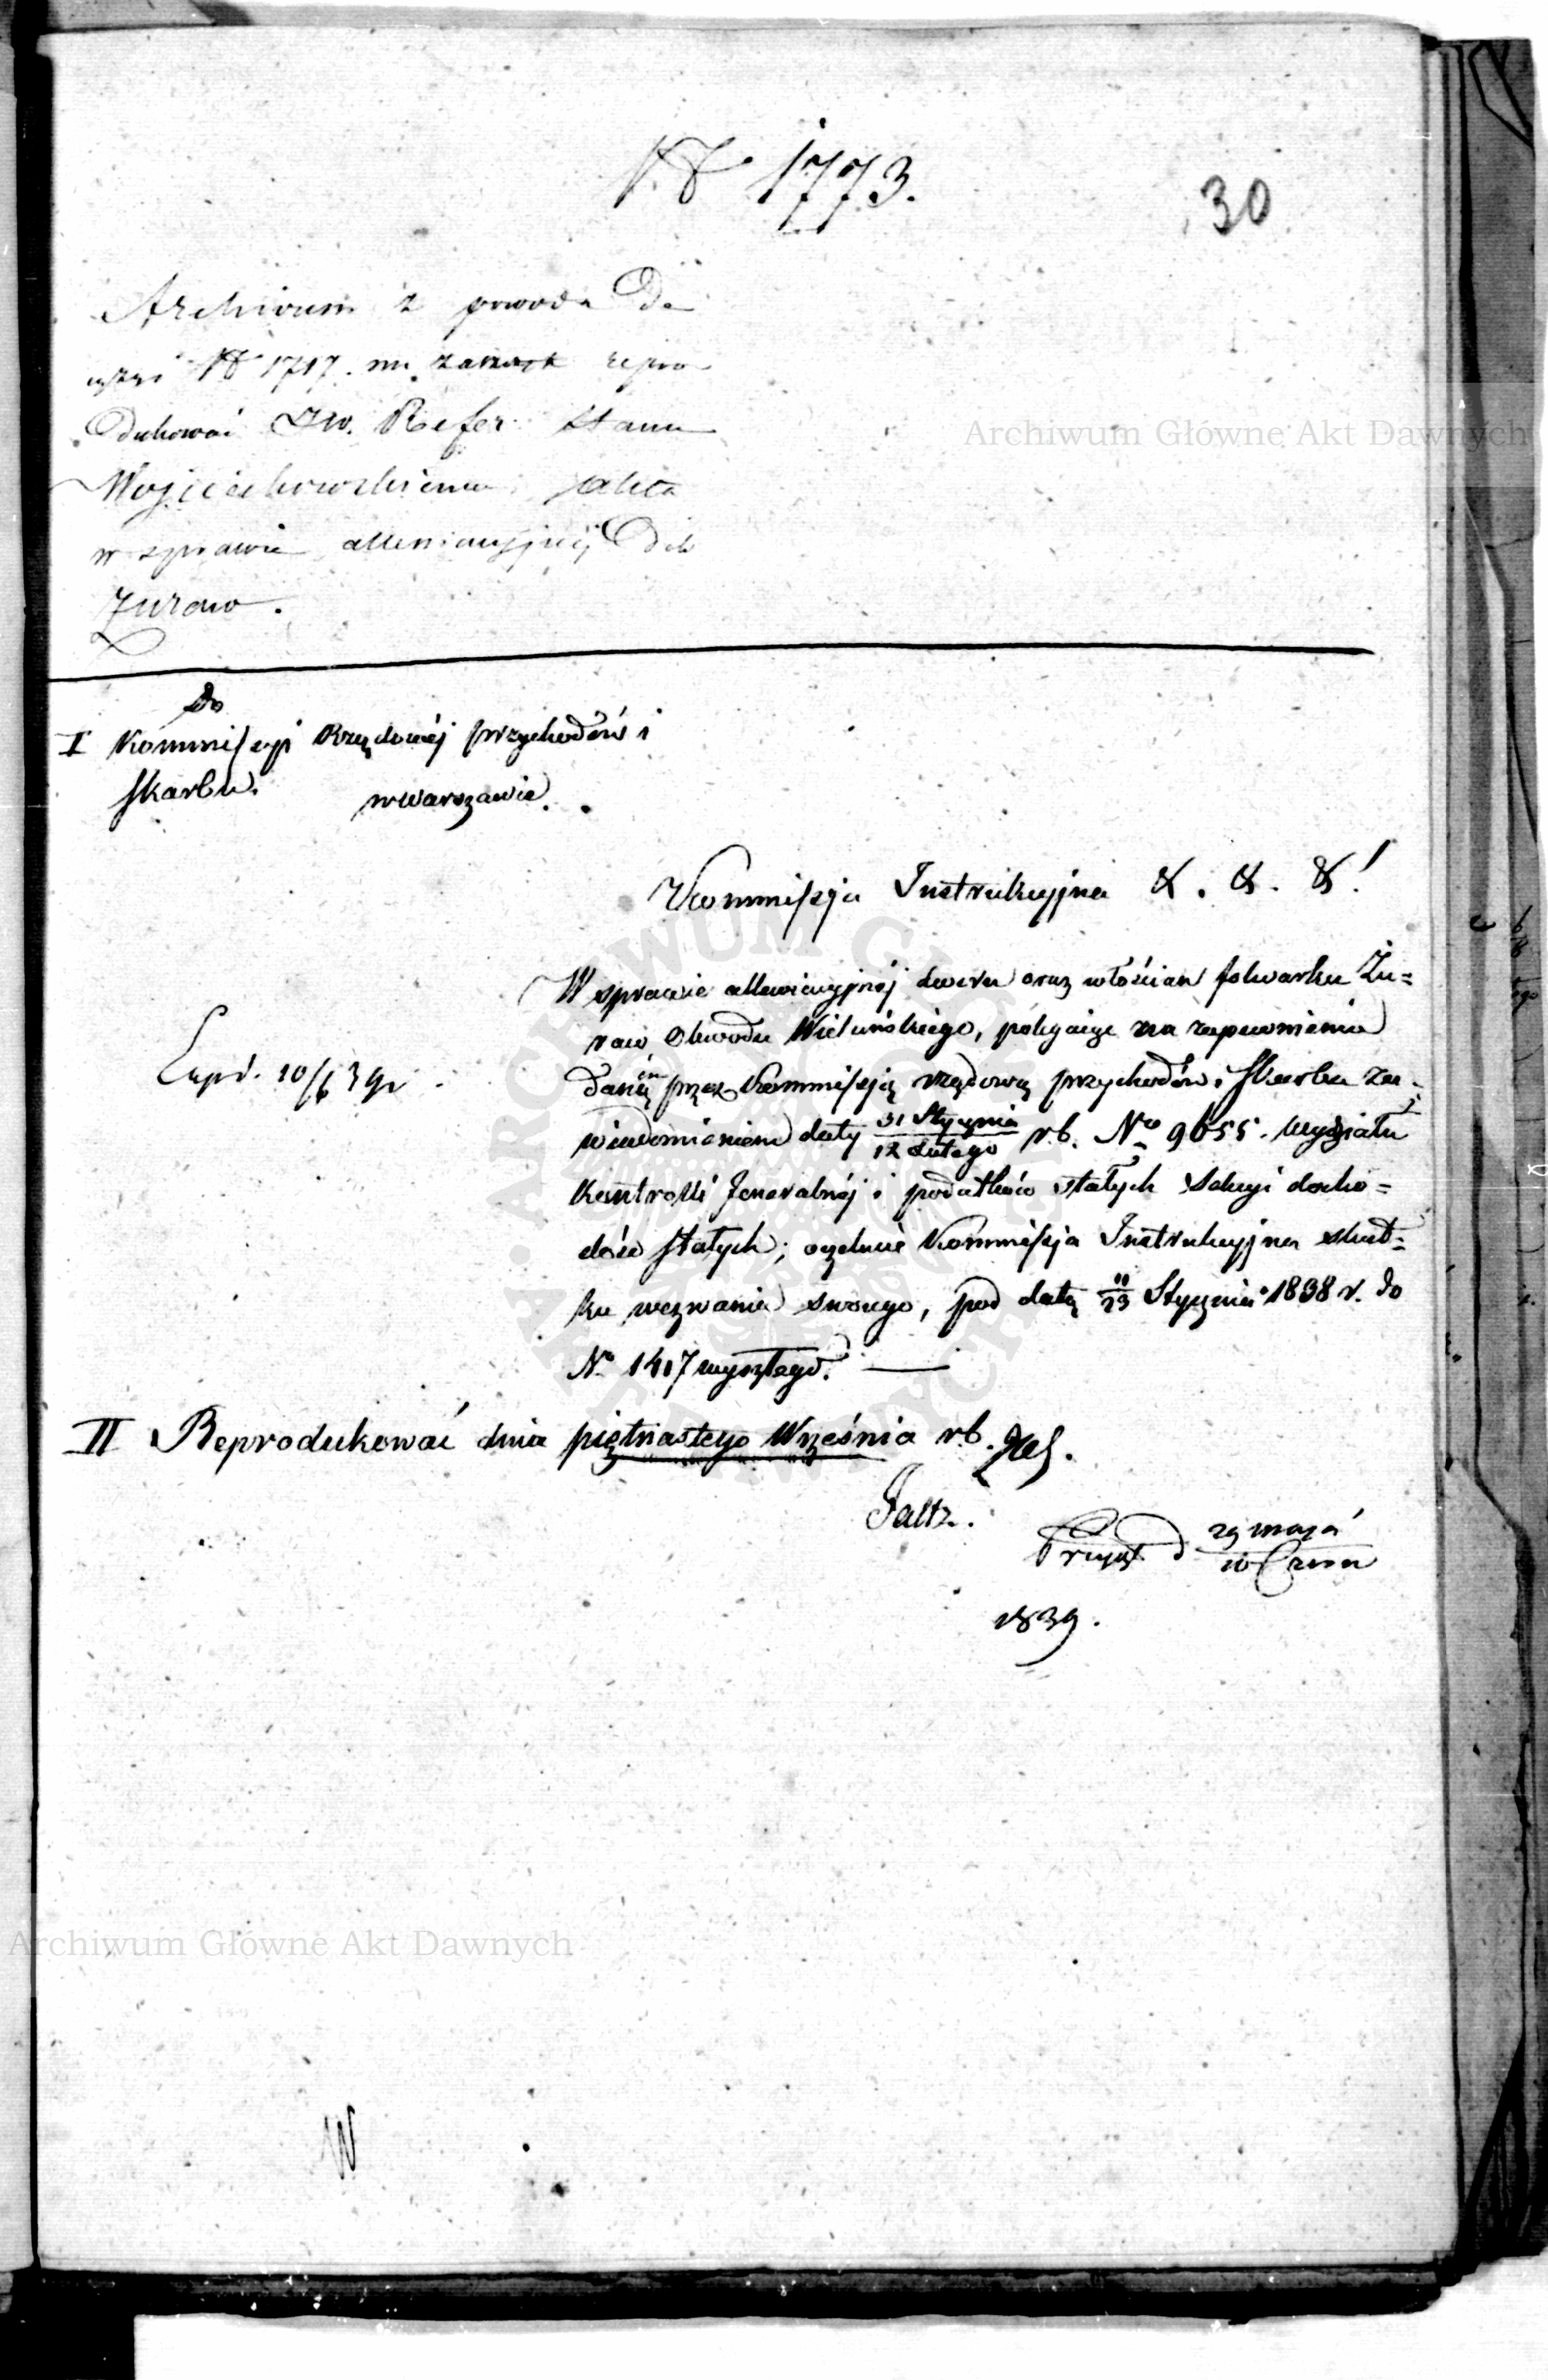 N° 1773.
30
Archivum z powodu De
cyzyi N° 1717. ma zaraz repro
dukować JW. Refer. Stanu
Wojciechowskiemu akta
w sprawie allewiacyjnej dób
Żuraw.
Do
I Kommissyi Rządowéj przychodów i
skarbu.
w Warszawie.
Kommissja Instrukcyjna &. &. &!
W sprawie allewiacyjnéj dworu oraz włościan folwarku Żu=
raw Obwodu Wieluńskiego, polegając na zapewnieniu
daném przez Kommissją rządową przychodów i Skarbu za=
wiadomieniem daty 31 Stycznia / 12 Lutego r.b. No 9655. Wydziału
Kontrolli Jeneralnéj i podatków stałych Sekcyi docho=
dów stałych; oczekuie Kommissja Instrukcyjna skut=
ku wezwania swoiego, pod datą 11/23 Stycznia 1838 r. do
No 1417 wyszłego. —
Exped. 10/6 39 r.
II Reprodukować dnia piętnastego Września r.b.
29 maja
10 Czerw
1839.
W
Archiwum Główne Akt Dawnych
Archiwum Główne Akt Dawnych